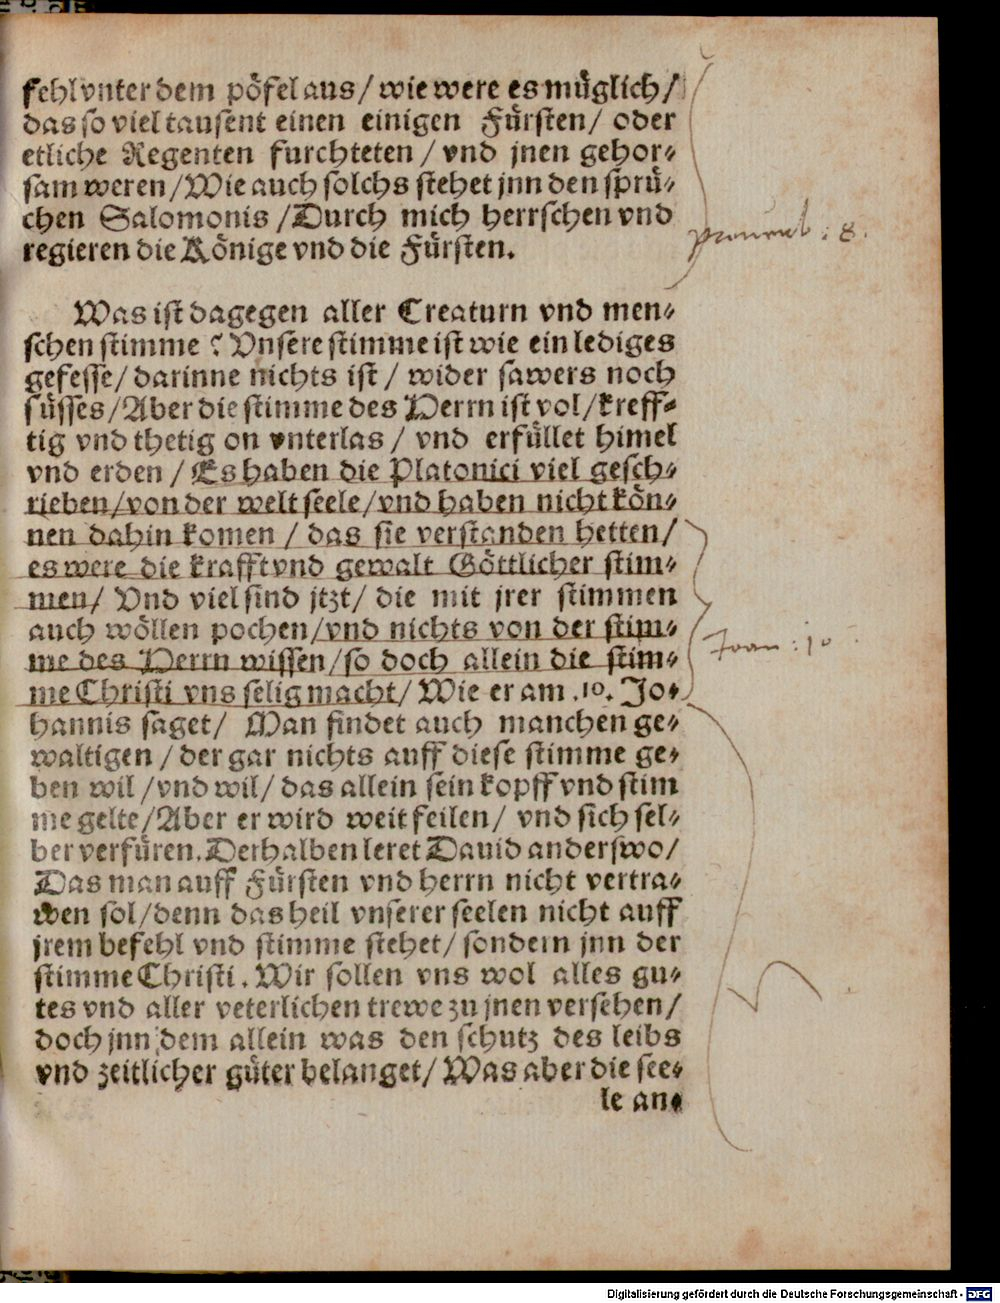 fehl vnter dem pöfel aus / wie were es müglich /
das so viel tausent einen einigen Fürsten / oder
etliche Regenten furchteten / vnd jnen gehor⸗
sam weren / Wie auch solchs stehet jnn den sprü⸗
chen Salomonis / Durch mich herrschen vnd
regieren die Könige vnd die Fürsten.
prouerb : 8.
Was ist dagegen aller Creaturn vnd men⸗
schen stimme ? Vnsere stimme ist wie ein lediges
gefesse / darinne nichts ist / wider sawers noch
süsses / Aber die stimme des Herrn ist vol / kreff⸗
tig vnd thetig on vnterlas / vnd erfüllet himel
vnd erden / Es haben die Platonici viel gesch⸗
rieben / von der welt seele / vnd haben nicht kön⸗
nen dahin komen / das sie verstanden hetten /
es were die krafft vnd gewalt Göttlicher stim⸗
men / Vnd viel sind jtzt / die mit jrer stimmen
auch wöllen pochen / vnd nichts von der stim⸗
me des Herrn wissen / so doch allein die stim⸗
me Christi vns selig macht / Wie er am .10. Jo⸗
Joan : 10
hannis saget / Man findet auch manchen ge⸗
waltigen / der gar nichts auff diese stimme ge⸗
ben wil / vnd wil / das allein sein kopff vnd stim
me gelte / Aber er wird weit feilen / vnd sich sel⸗
ber verfüren. Derhalben leret Dauid anderswo /
Das man auff Fürsten vnd herrn nicht vertra⸗
wen sol / denn das heil vnserer seelen nicht auff
jrem befehl vnd stimme stehet / sondern jnn der
stimme Christi. Wir sollen vns wol alles gu⸗
tes vnd aller veterlichen trewe zu jnen versehen /
doch jnn dem allein was den schutz des leibs
vnd zeitlicher güter belanget / Was aber die see⸗
le an⸗
Digitalisierung gefördert durch die Deutsche Forschungsgemeinschaft - DFG